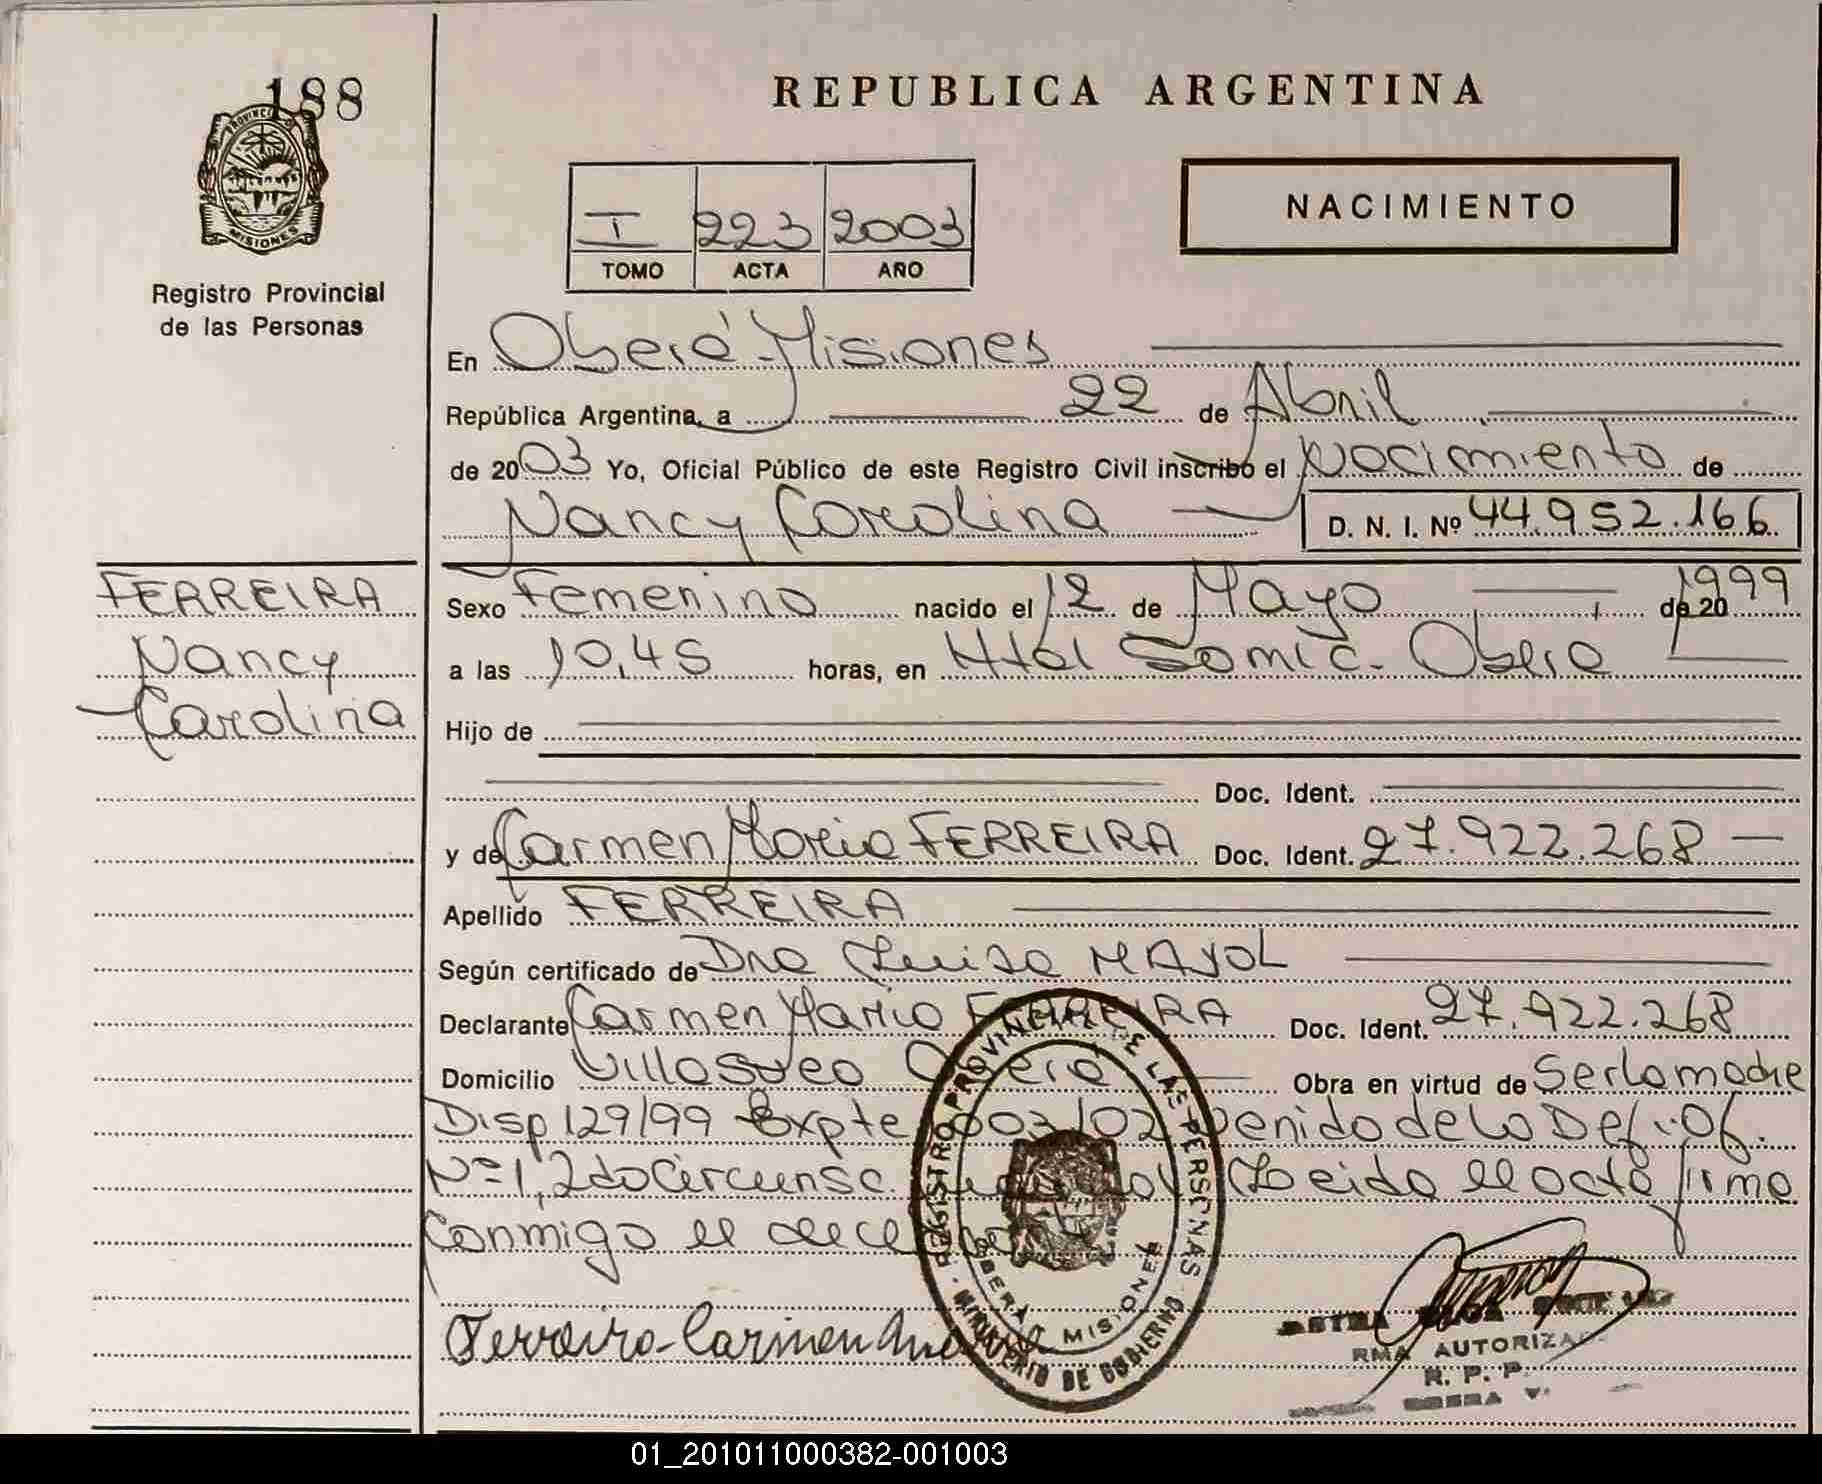 188
REPUBLICA ARGENTINA
PROVINCIA D MISIONES
NACIMIENTO
I 223 2003
TOMO ACTA AÑO
Registro Provincial
de las Personas
En Oberá Misiones
República Argentina, a 22 de Abril
de 2003 Yo, Oficial Público de este Registro Civil inscribo el Nacimiento de
Nancy Carolina D. N. I. Nº 44.952.166
FERREIRA
Nancy
Carolina
Sexo Femenino nacido el 12 de Mayo de 20 1999
a las 10,45 horas, en Htal Samic. Oberá
Hijo de
Doc. Ident.
y de Carmen Maria FERREIRA Doc. Ident. 27.922.268
Apellido FERREIRA
Según certificado de Dra Luisa MAYOL
Declarante Carmen Maria FERREIRA Doc. Ident. 27.922.268
Domicilio Oberá Obra en virtud de Ser la madre
Disp 129/99 Expte 003/02 venido de la Def. Of.
Nº 1, 2da Circunsc. Leida el acta firma
conmigo el
Ferreira Carmen
REGISTRO PROVINCIAL DE LAS PERSONAS
MINISTERIO DE GOBIERNO
OBERÁ MISIONES
RMA AUTORIZA
R. P. P.
OBERA
01_201011000382-001003